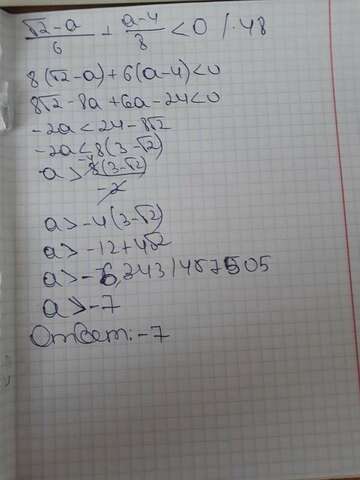 √2-a/6 + a-4/8 < 0 /·48
8(√2-a)+6(a-4)<0
8√2-8a+6a-24<0
-2a<24-8√2
-2a<8(3-√2)
a> 8(3-√2)/-2 -4
a>-4(3-√2)
a>-12+4√2
a>-6,343145750 5
a>-7
Ответ:-7